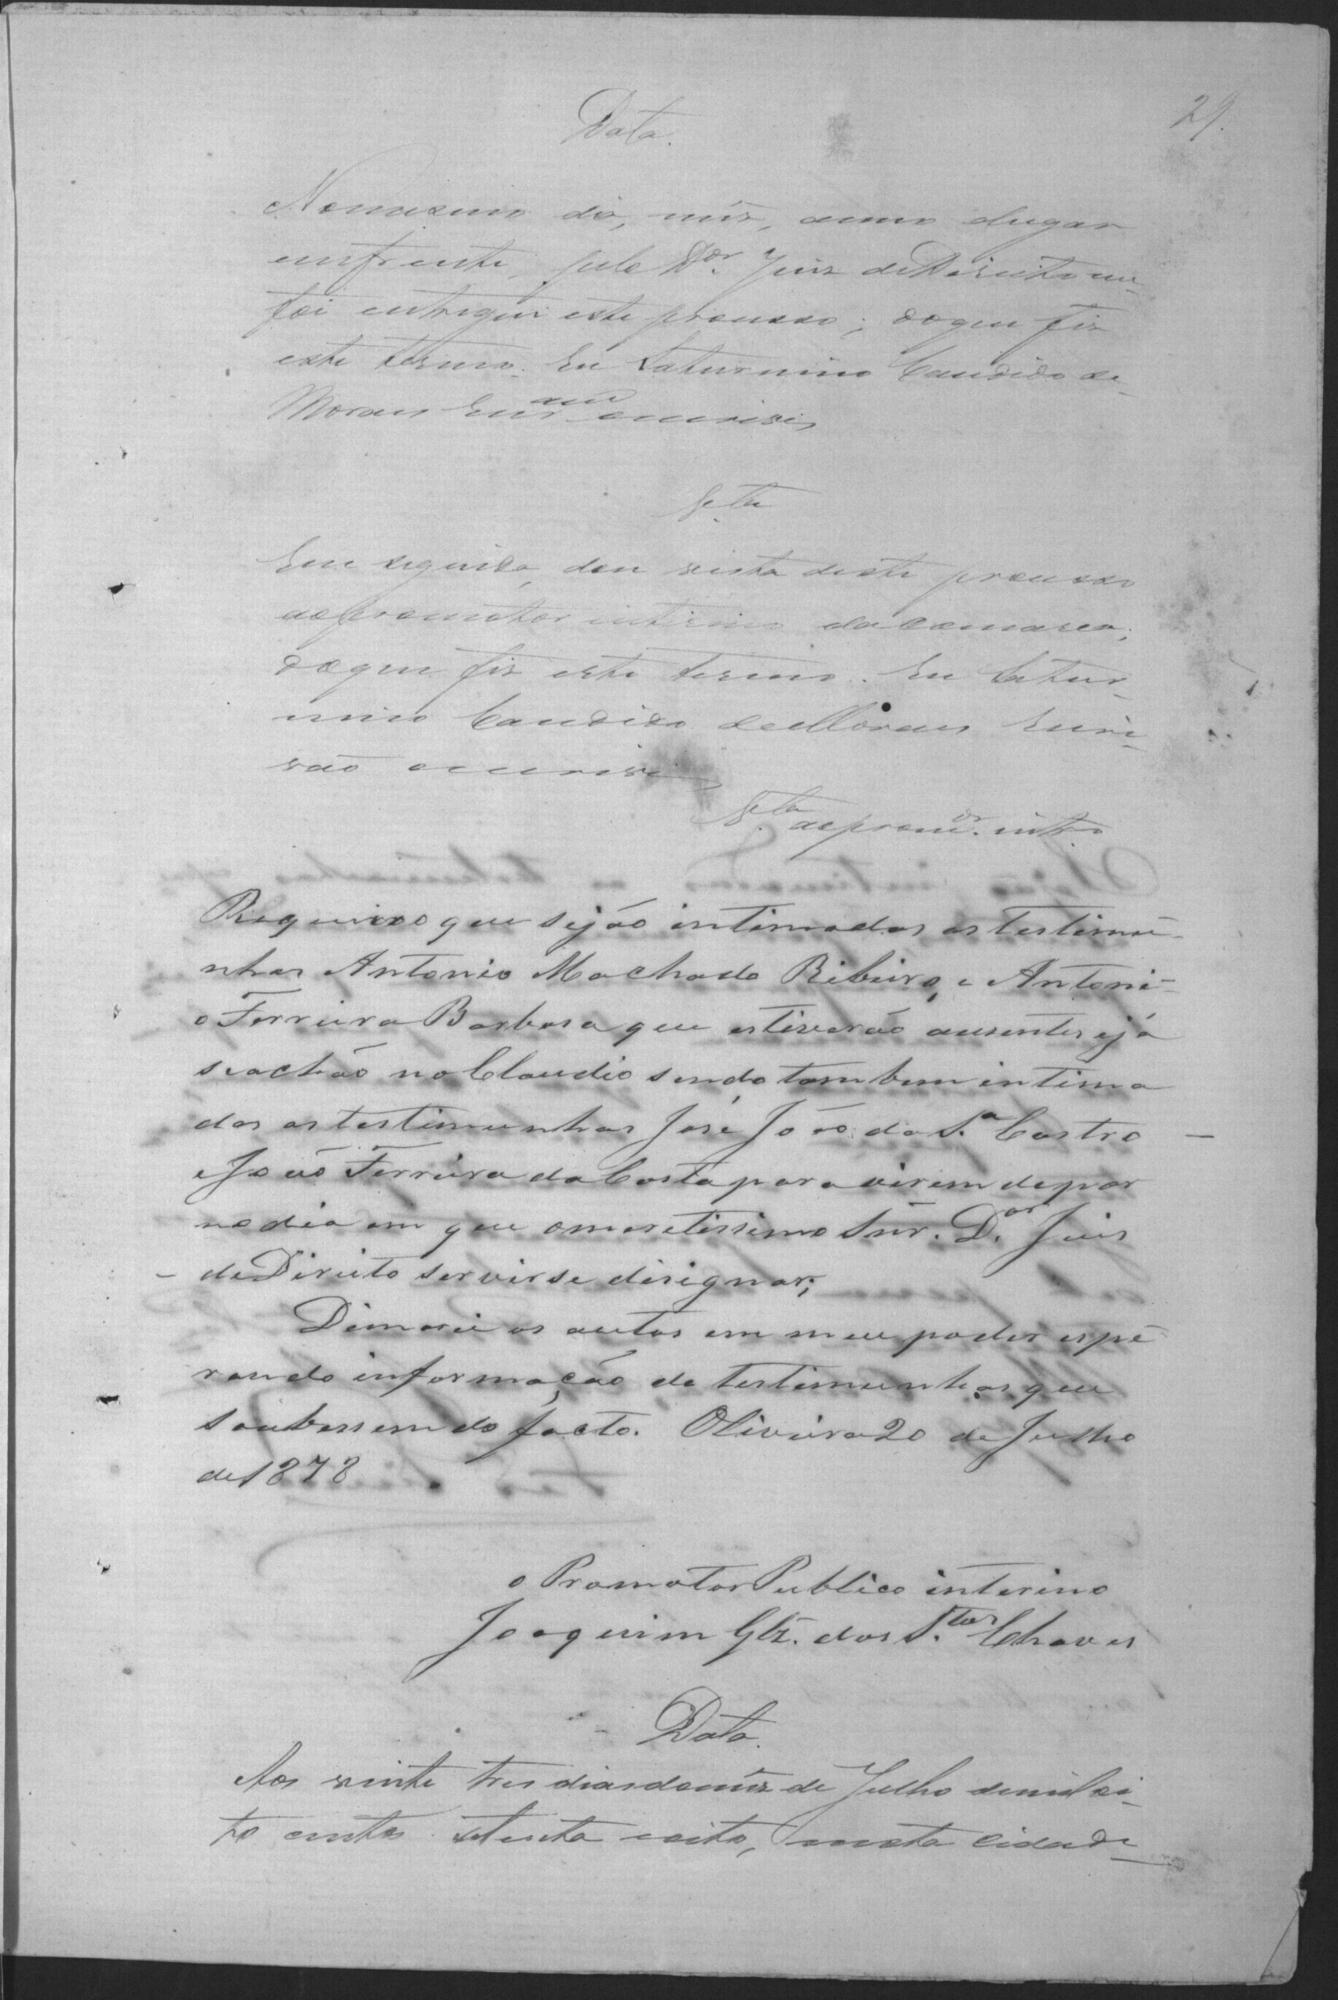 29.
Data.
No mesmo dia, mês, anno elugar
emfrente, pelo Dor. Juiz deDireito me
foi entregue este processo; doque fiz
este termo. Eu Saturnino Candido de
Moraes Escram oescrevi
Vta
Em seguida, dou vista deste processo
aopromotor interino dacomarca;
doque fiz este termo. Eu Satur-
nino Candido deMoraes Escri-
vão oescrevi
Vta aopromor. intro
Requeiro que sejão intimadas as testimu-
nhas Antonio Machado Ribeiro, e Antoni-
o Ferreira Barbosa que estiverão ausentes ejá
seachão noClaudio sendo tambem intima
das as testimunhas José João da Sa. Castro
eJoão Ferreira daCosta para virem depor
nodia em que omeretissimo Snr. Dor. Juis
deDireito servirse disignar;
Dimorei os autos em meu poder espe-
rando informação de testimunhas que
soubessem do facto. Oliveira 20 de Julho
de 1878
o Promotor Publico interino
Joaquim Glz. dos Stos. Chaves
Data.
Aos vinte tres dias domêz de Julho demil oi-
to centos setenta eoito, nesta cidade